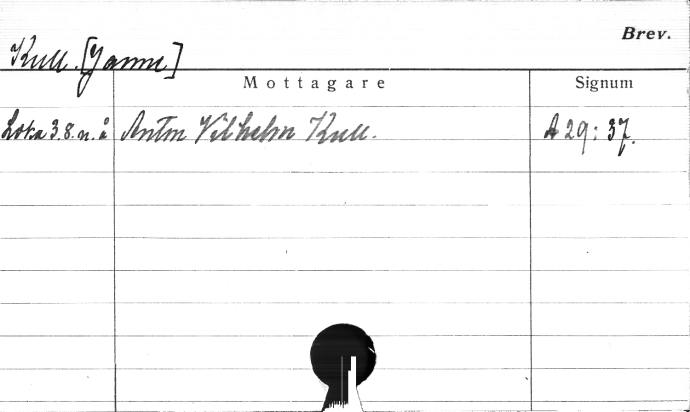 Brev.
Kull. [Janne]
Mottagare Signum
Loka 3.8. u. å Anton Vilhelm Kull. A 29: 37.